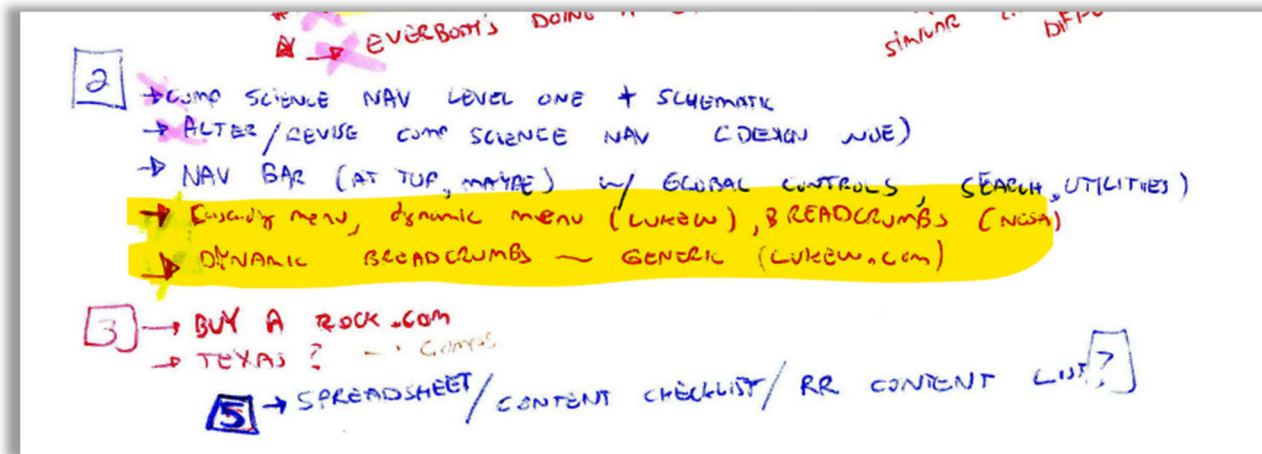 → EVERBODY'S DOING A
SIMILAR
2
→ COMP SCIENCE NAV LEVEL ONE + SCHEMATIC
→ ALTER/REVISE COMP SCIENCE NAV (DESIGN NUE)
→ NAV BAR (AT TOP, MAYBE) w/ GLOBAL CONTROLS, SEARCH, UTILITIES)
→ Cascading menu, dynamic menu (LUKEW), BREADCRUMBS (NCSA)
→ DYNAMIC BREADCRUMBS ~ GENERIC (LUKEW.com)
3 → BUY A ROCK.com
→ TEXAS? → COMPS
5 → SPREADSHEET/CONTENT CHECKLIST/RR CONTENT LIST?